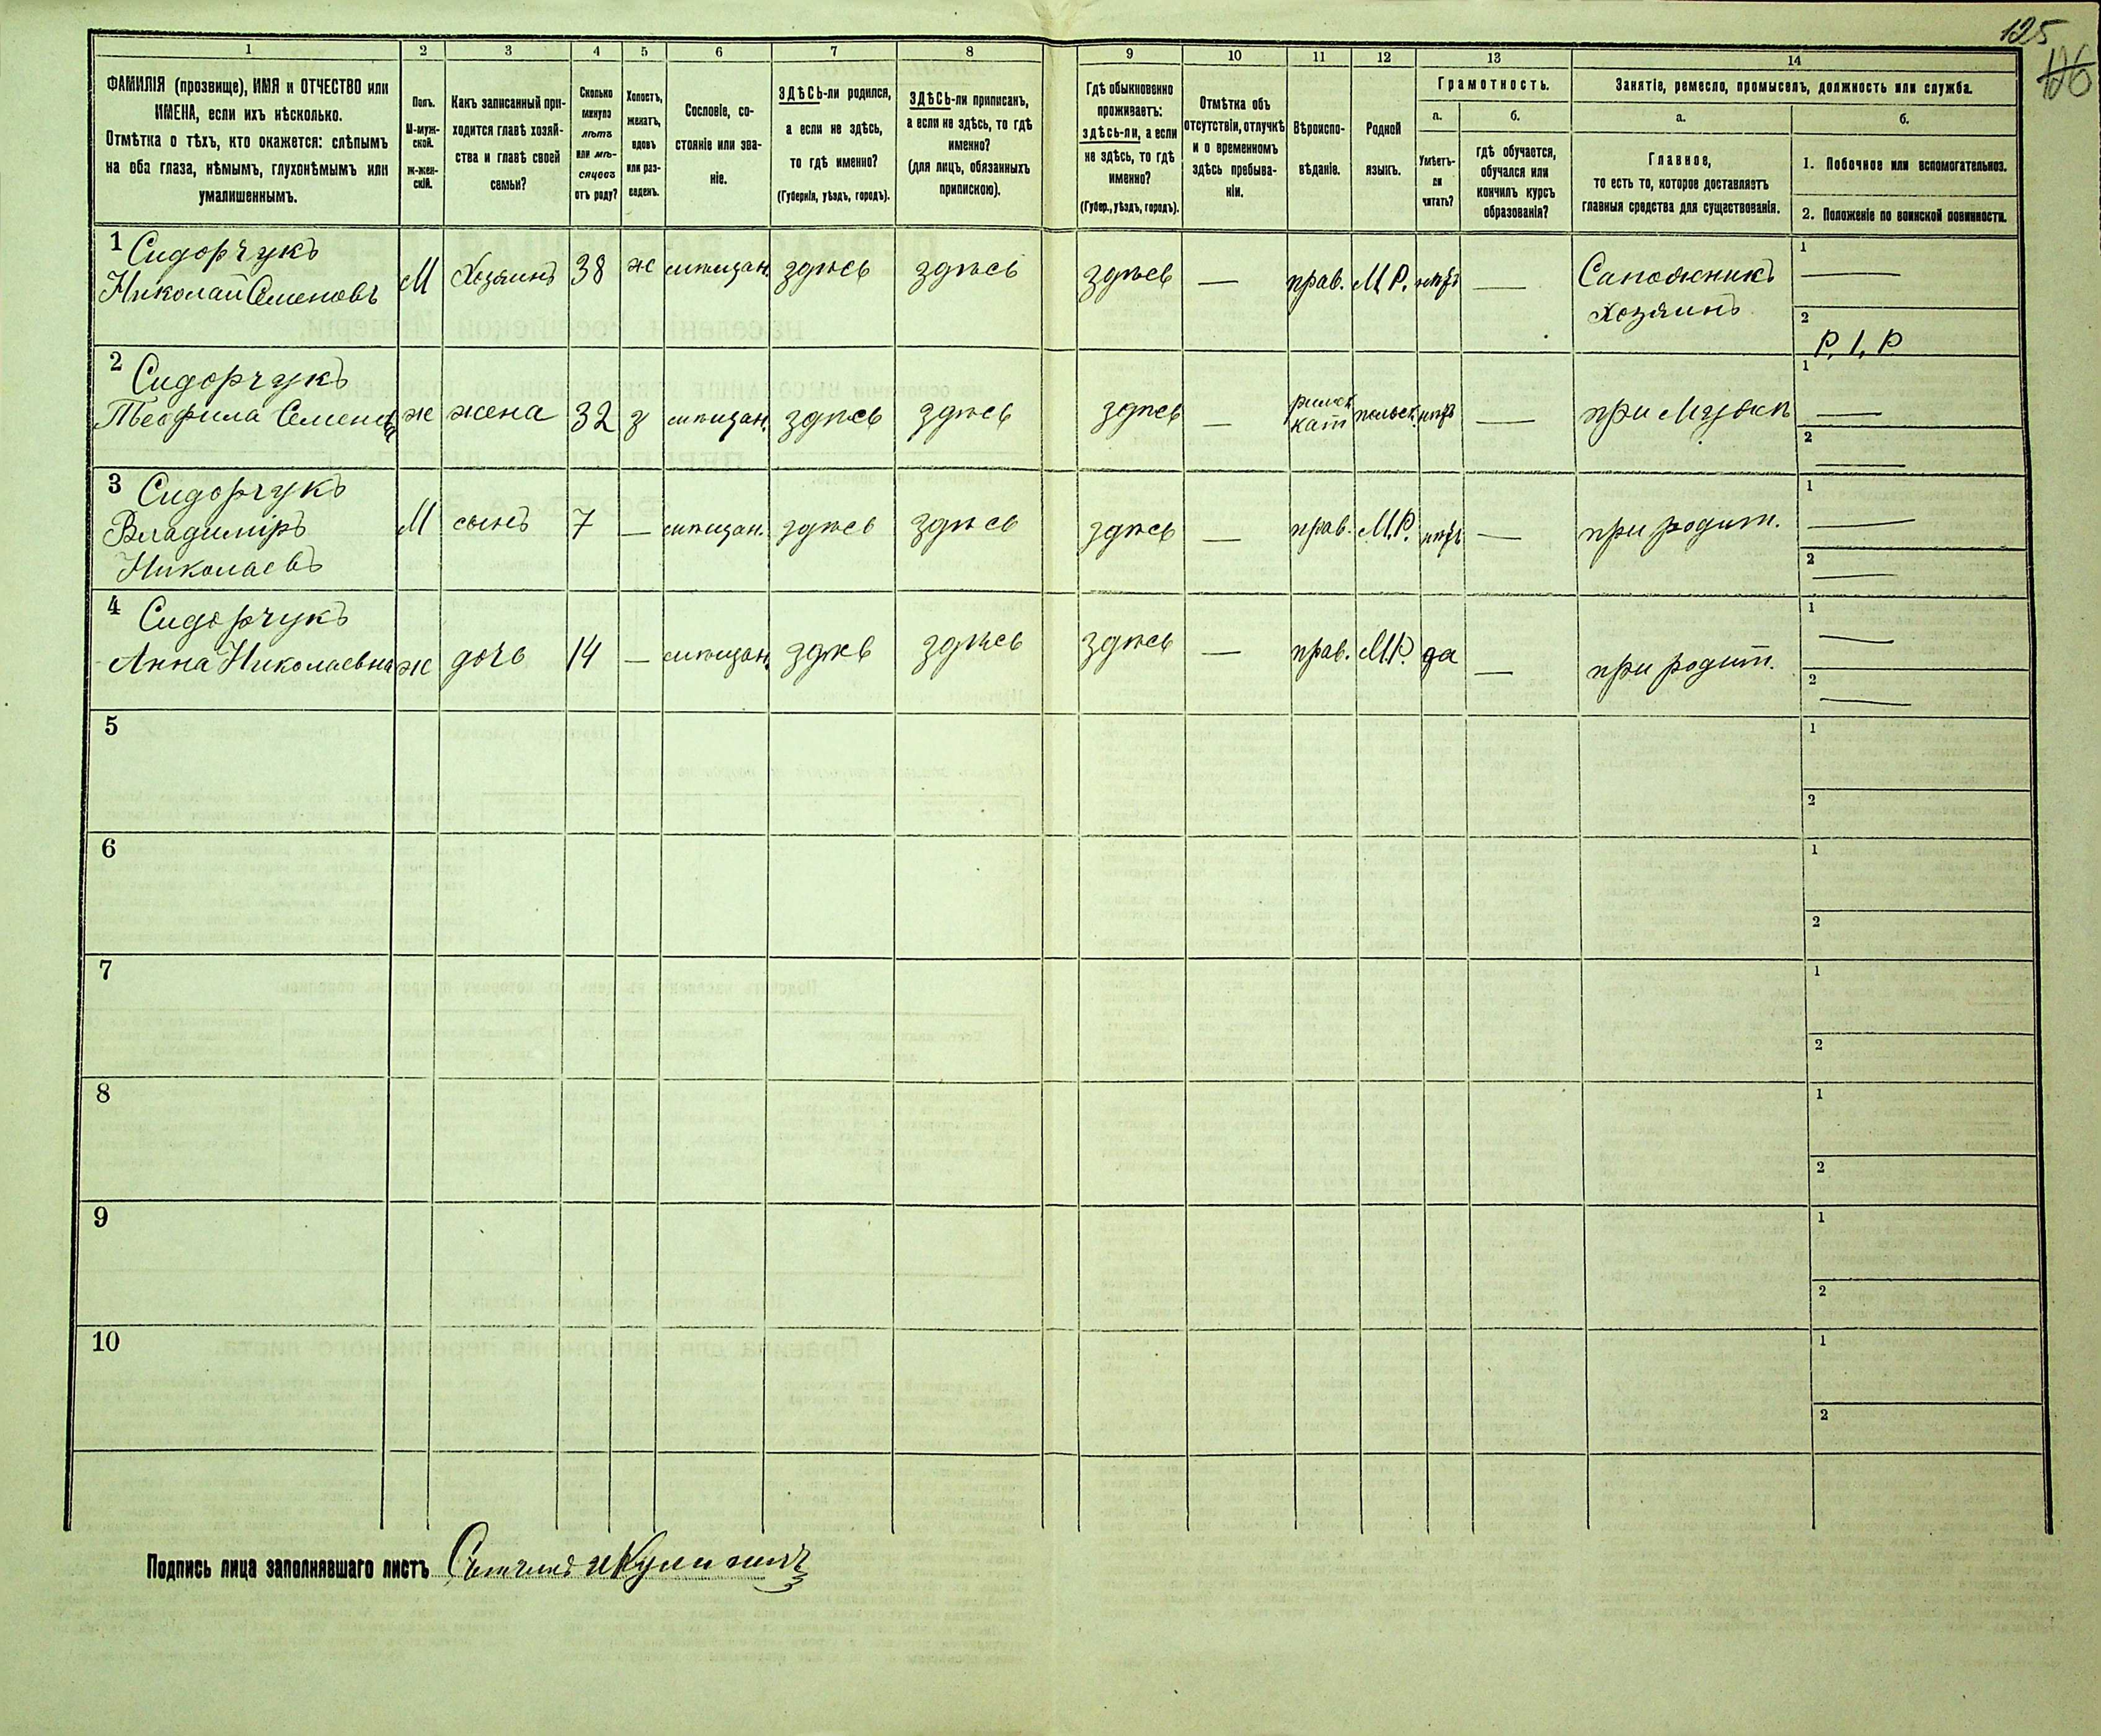 125
126
1 2 3 4 5 6 7 8 9 10 11 12 13 14
ФАМИЛІЯ (прозвище), ИМЯ и ОТЧЕСТВО или
ИМЕНА, если ихъ нѣсколько.
Отмѣтка о тѣхъ, кто окажется: слѣпымъ
на оба глаза, нѣмымъ, глухонѣмымъ или
умалишеннымъ.
Полъ.
М-муж-
ской.
ж-жен-
скій.
Какъ записанный при-
ходится главѣ хозяй-
ства и главѣ своей
семьи?
Сколько
минуло
лѣтъ
или мѣ-
сяцевъ
отъ роду?
Холостъ,
женатъ,
вдовъ
или раз-
веденъ.
Сословіе, со-
стояніе или зва-
ніе.
ЗДѢСЬ-ли родился,
а если не здѣсь,
то гдѣ именно?
(Губернія, уѣздъ, городъ).
ЗДѢСЬ-ли приписанъ,
а если не здѣсь, то гдѣ
именно?
(для лицъ, обязанныхъ
припискою).
Гдѣ обыкновенно
проживаетъ:
здѣсь-ли, а если
не здѣсь, то гдѣ
именно?
(Губер., уѣздъ, городъ).
Отмѣтка объ
отсутствіи, отлучкѣ
и о временномъ
здѣсь пребыва-
ніи.
Вѣроиспо-
вѣданіе.
Родной
языкъ.
Грамотность.
а.
Умѣетъ-
ли
читать?
б.
гдѣ обучается,
обучался или
кончилъ курсъ
образованія?
Занятіе, ремесло, промыселъ, должность или служба.
а.
Главное,
то есть то, которое доставляетъ
главныя средства для существованія.
б.
1. Побочное или вспомогательное.
2. Положеніе по воинской повинности.
1 Сидорчукъ
Николай Семеновъ М Хозяинъ 38 ж мѣщан. здѣсь здѣсь здѣсь — прав. М.Р. нѣтъ — Сапожникъ
Хозяинъ
1 —
2 Р. 1, Р
2 Сидорчукъ
Теофила Семенова ж жена 32 з мѣщан. здѣсь здѣсь здѣсь — римск
кат польск. нѣтъ — при мужѣ
1 —
2 —
3 Сидорчукъ
Владиміръ
Николаевъ М сынъ 7 — мѣщан. здѣсь здѣсь здѣсь — прав. М.Р. нѣтъ — при родит.
1 —
2 —
4 Сидорчукъ
Анна Николаевна ж дочь 14 — мѣщан. здѣсь здѣсь здѣсь — прав. М.Р. да — при родит.
1 —
2 —
5 1
2
6 1
2
7 1
2
8 1
2
9 1
2
10 1
2
Подпись лица заполнявшаго листъ Счетчикъ